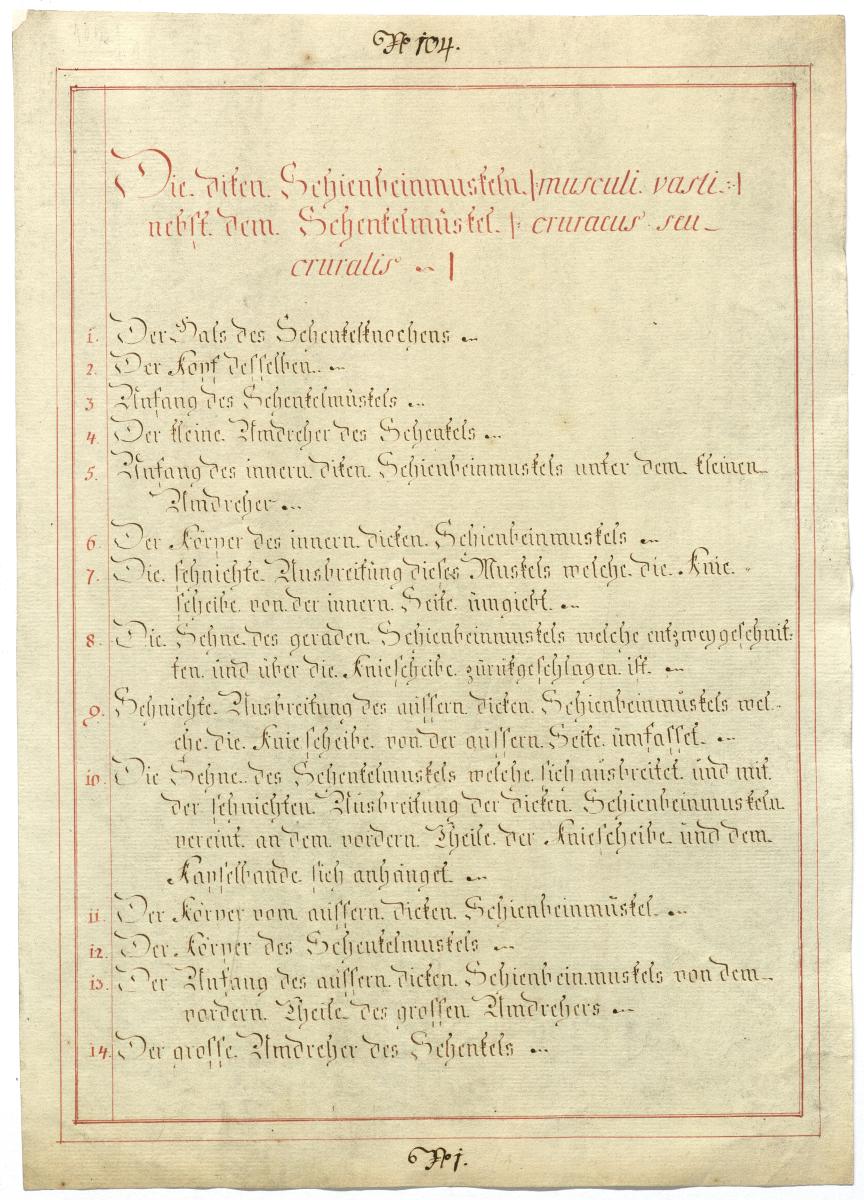 No 104.
Die diken Schienbeinmuskeln |: musculi vasti :|
nebst dem Schenkelmuskel |: cruraeus seu
cruralis |
1. Der Hals des Schenkelknochens
2. Der Kopf desselben.
3 Anfang des Schenkelmuskels
4. Der kleine Umdreher des Schenkels
5. Anfang des innern diken Schienbeinmuskels unter dem kleinen
Umdreher
6. Der Körper des innern dicken Schienbeinmuskels
7. Die sehnichte Ausbreitung dieses Muskels welche die Knie-
scheibe von der innern Seite umgiebt.
8. Die Sehne des geraden Schienbeinmuskels welche entzweygeschnit-
ten und über die Kniescheibe zurükgeschlagen ist.
9. Sehnichte Ausbreitung des aussern dicken Schienbeinmuskels wel-
che die Kniescheibe von der aussern Seite umfasset.
10. Die Sehne des Schenkelmuskels welche sich ausbreitet und mit
der sehnichten Ausbreitung der dicken Schienbeinmuskeln
vereint an dem vordern Theile der Kniescheibe und dem
Kapselbande sich anhänget.
11. Der Körper vom aussern dicken Schienbeinmuskel.
12. Der Körper des Schenkelmuskels
13. Der Anfang des aussern dicken Schienbeinmuskels von dem
vordern Theile des grossen Umdrehers
14. Der grosse Umdreher des Schenkels
No 1.